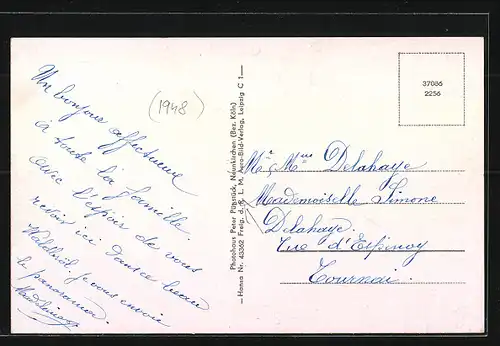 Un bonjour affectueux
à toute la famille
avec l'espoir de vous
revoir ici dans ce beau
Waldbröl, je vous envoie
le panorama.
(1948)
Photohaus Peter Pütsnück, Neunkirchen (Bez. Köln)
Hansa Nr. 45362 Freig. d. R. L. M. Aero-Bild-Verlag, Leipzig C 1
37086
2256
Mr & Mme Delahaye
Mademoiselle Simone
Delahaye
Rue d'Espinoy
Tournai